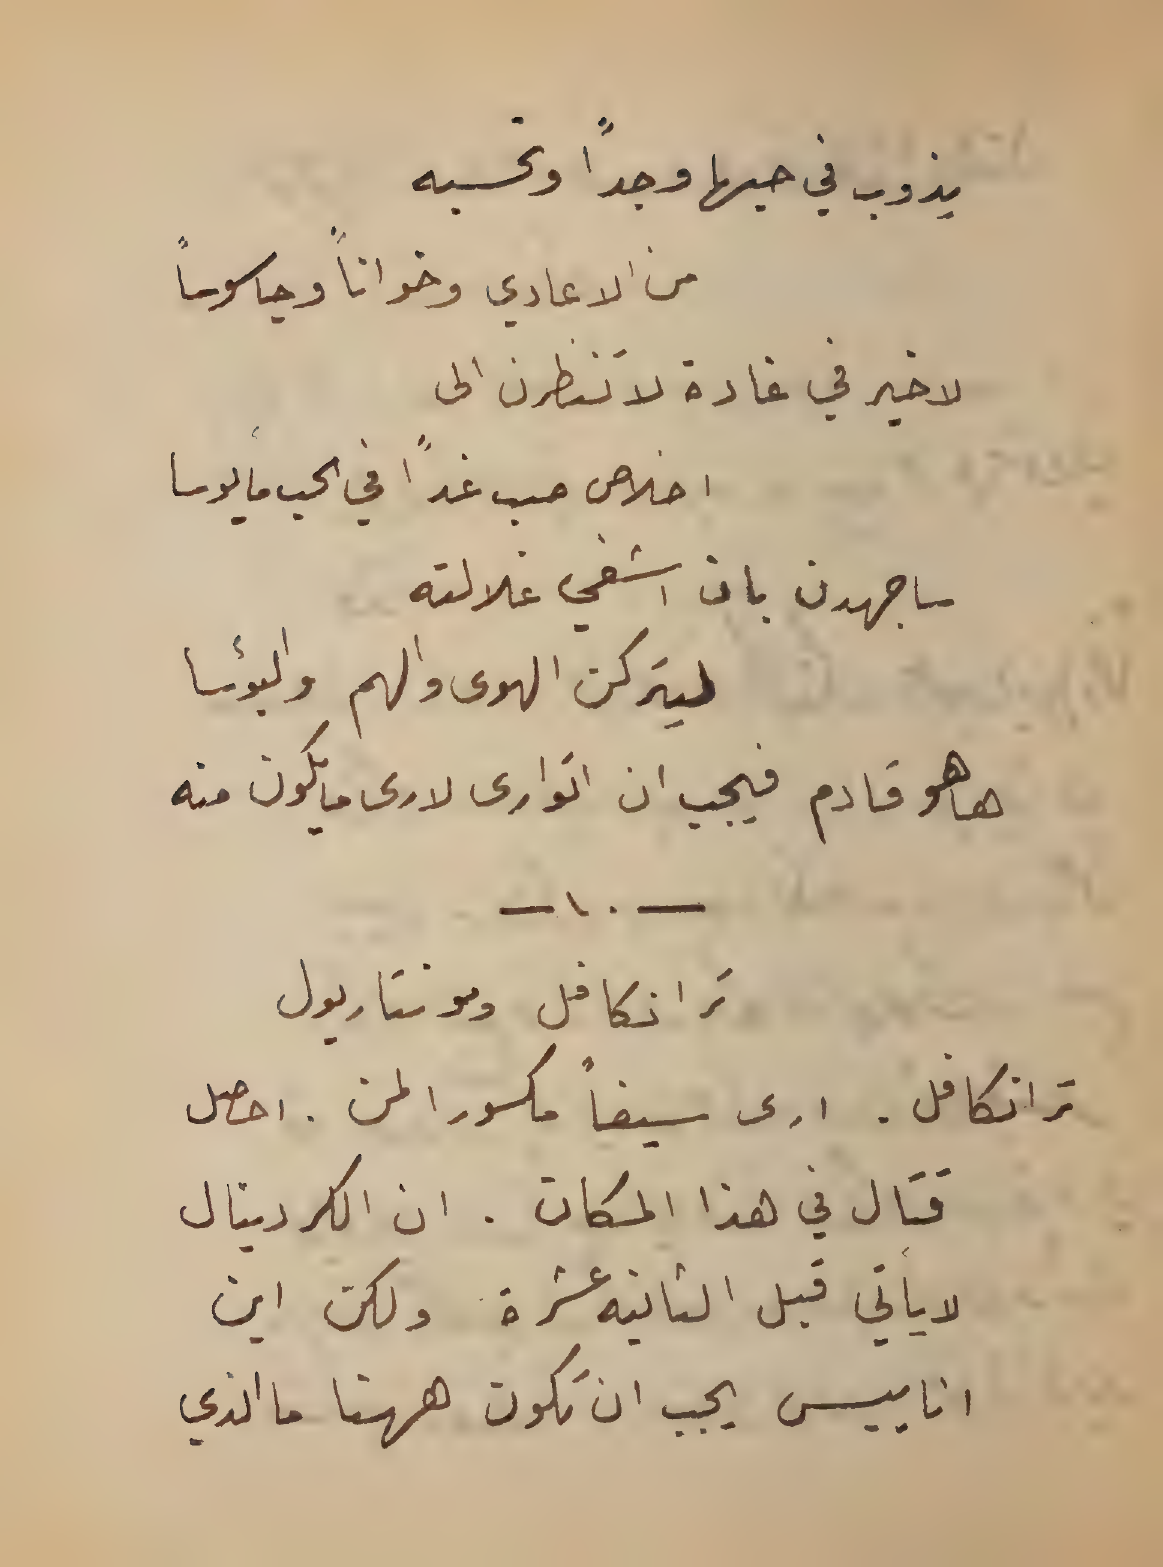 يذوب في حبها وجداً وتحسبه
من الاعادي وخواناً وجاسوساً
لا خير في غادة لا تنظرن الى
اخلاص صب غداً في الحب مأيوسا
ساجهدن بان اشفي غلالته
ليتركن الهوى والهم والبؤسا
ها هو قادم فيجب ان اتوارى لارى ما يكون منه
— ١٠ —
ترانكافل ومونتاريول
ترانكافل . ارى سيفاً مكسورا لمن . احصل
قتال في هذا المكان . ان الكردينال
لا يأتي قبل الثانيه عشرة ولكن اين
اناييس يجب ان تكون ههنا ما الذي